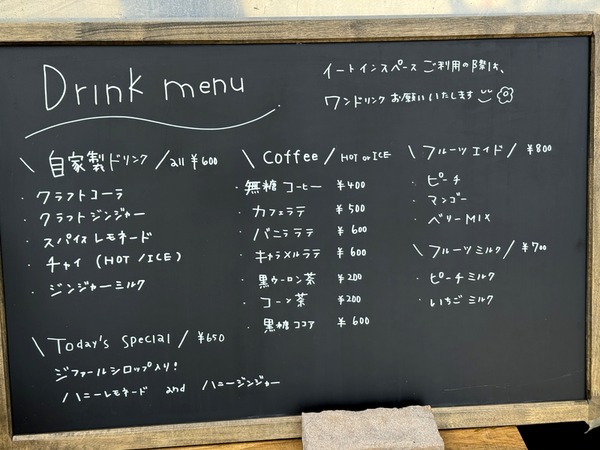 Drink menu
イートインスペース ご利用の際は、
ワンドリンク お願いいたします
\ 自家製ドリンク / all ¥600
・クラフトコーラ
・クラフトジンジャー
・スパイスレモネード
・チャイ (HOT / ICE)
・ジンジャーミルク
\ Today's special / ¥650
ジファールシロップ入り!
ハニーレモネード and ハニージンジャー
\ Coffee / HOT or ICE
・無糖コーヒー ¥400
・カフェラテ ¥500
・バニララテ ¥600
・キャラメルラテ ¥600
・黒ウーロン茶 ¥200
・コーン茶 ¥200
・黒糖ココア ¥600
\ フルーツエイド / ¥800
・ピーチ
・マンゴー
・ベリーMIX
\ フルーツミルク / ¥700
・ピーチミルク
・いちごミルク